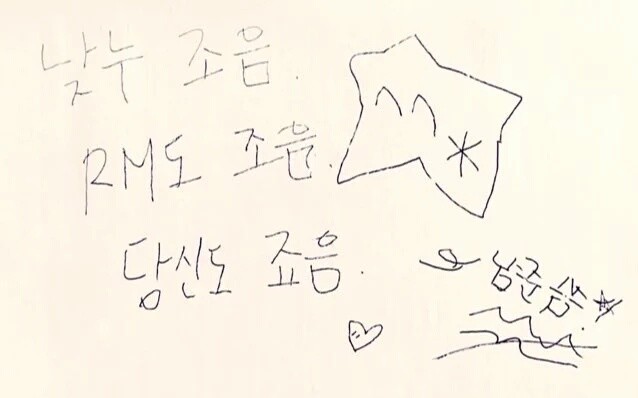 낮누 조음.
RM도 조음.
당신도 죠음.
남준 씀.